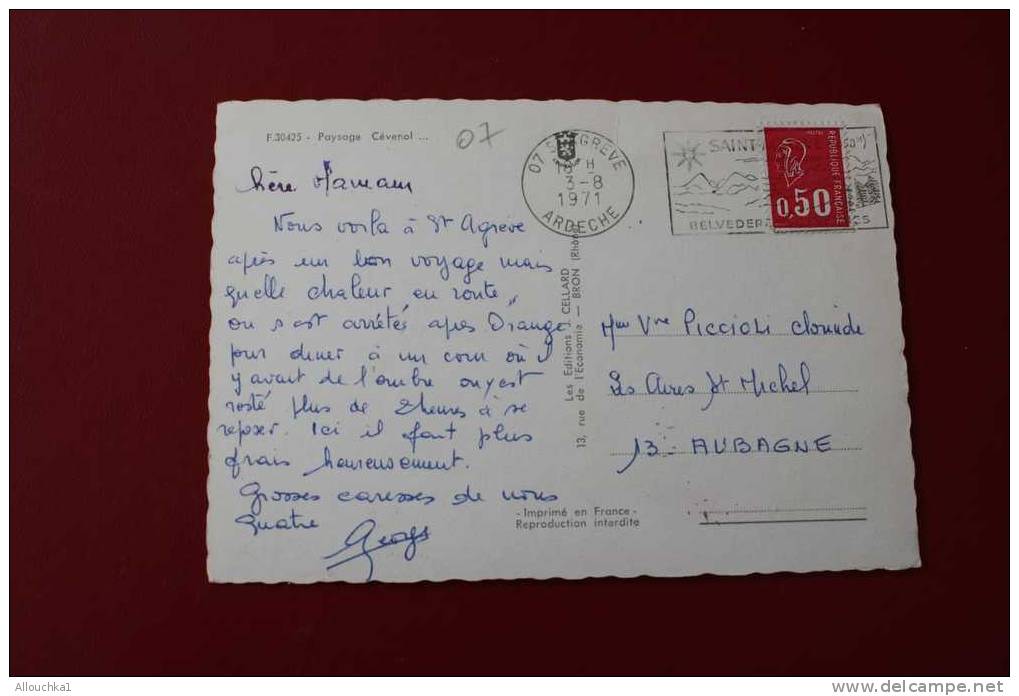 F.30425 - Paysage Cévenol ...
07
07 ST AGREVE
18 H
3-8
1971
ARDECHE
SAINT-
BELVEDER
REPUBLIQUE FRANÇAISE
0,50
chère Maman
Nous voila à St Agrève
après un bon voyage mais
quelle chaleur en route,,
on s'est arrétés apres Orange
pour diner à un coin où il
y avait de l'ombre on y est
resté plus de 2 heures à se
reposer. Ici il fait plus
frais heureusement.
Grosses caresses de nous
quatre
Les Editions J. CELLARD
13, rue de l'Economie — BRON (Rhône)
Mme Vve PICCIOLI
Les Aires St Michel
13 - AUBAGNE
- Imprimé en France -
Reproduction interdite
Allouchka1
www.delcampe.net